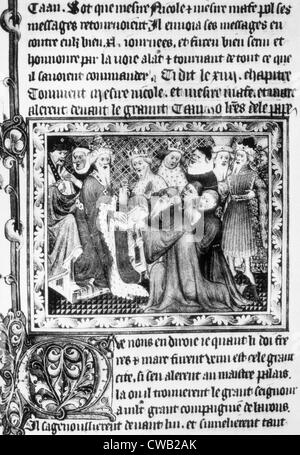 Taan. Sot que mesire Nicole ⁊ mesire mafe pol ses
messages retournoient Il enuoia ses messages en
contre eulz bien .x. iournees, et furen bien serui et
honnoure par la uoie alant ⁊ tournant de tout ce
il sauoient commander. Ci dit le xiiii. chapitre
Comment mesire nicole, et mesire mafe, et marc
alerent deuant le grant Caan
Que uous en diroie ie quant li doi fre
res ⁊ marc furent uenu en cele grant
cite, si sen alerent au maistre palais.
la ou il trouuerent le grant seignour
a mlt grant compaignie de barons.
Il sagenoillierent deuant lui, et sumelierent tant
alamy
CWB2AK
www.alamy.com